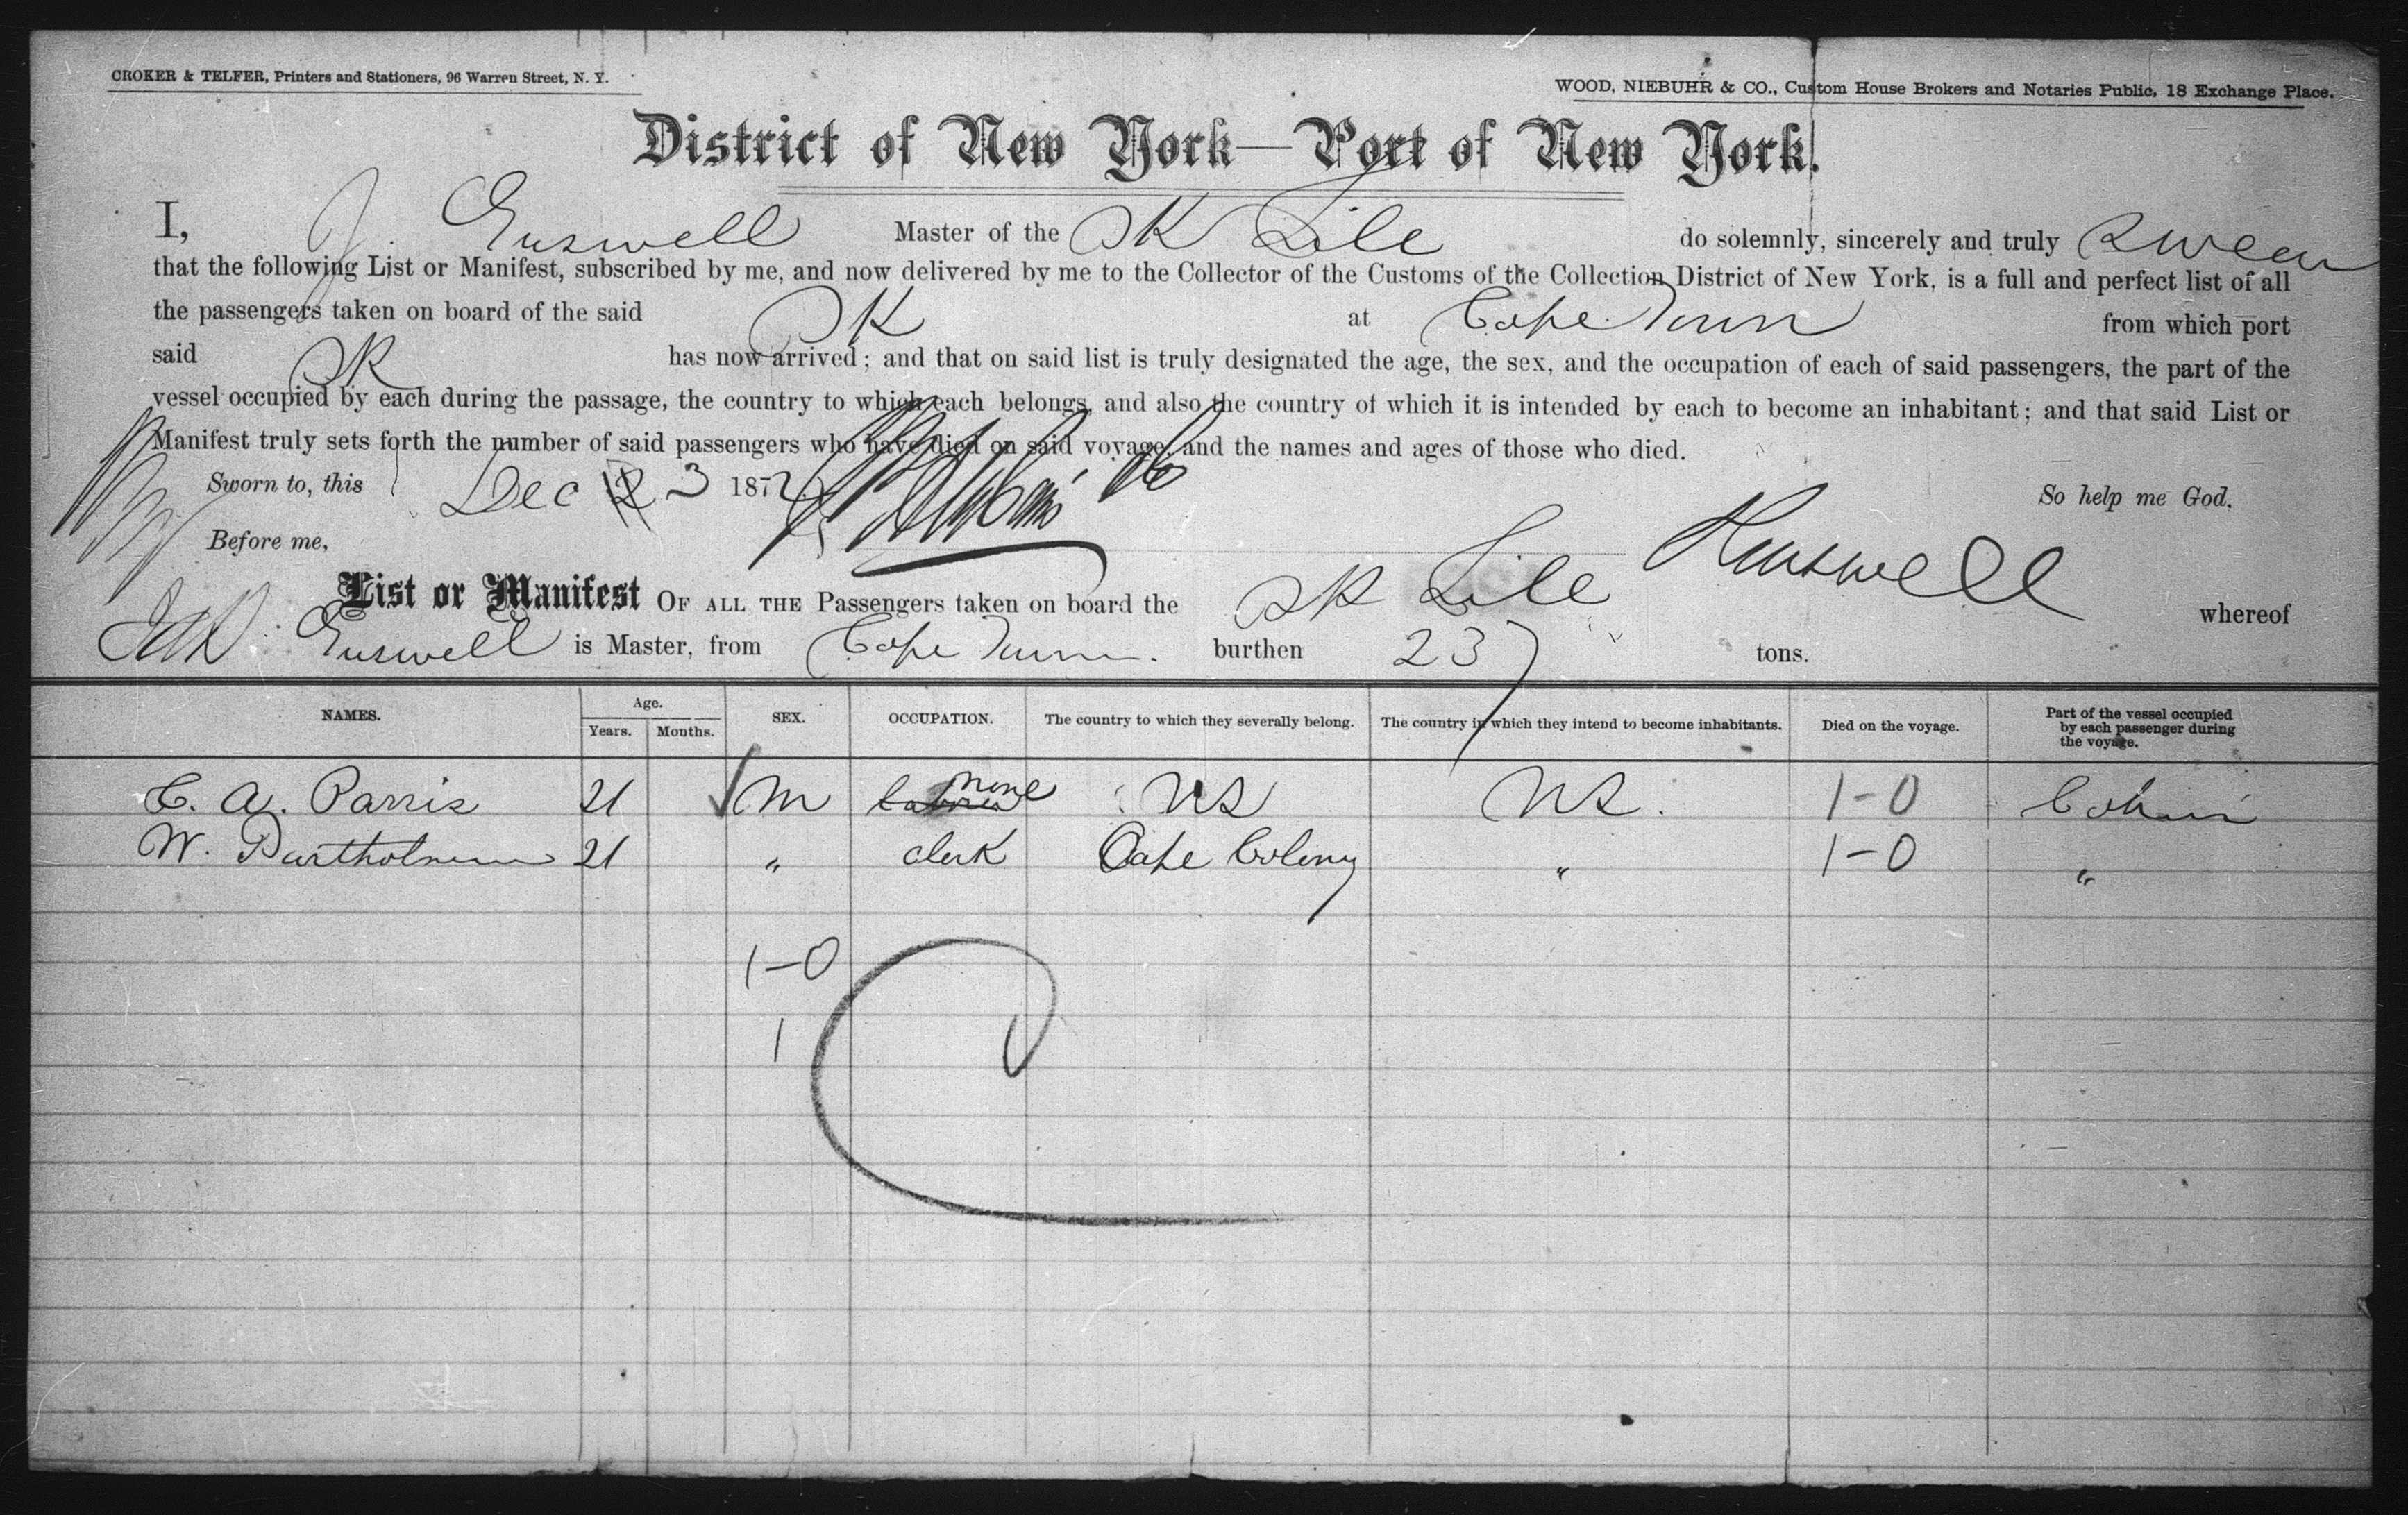 CROKER & TELFER, Printers and Stationers, 96 Warren Street, N. Y.
WOOD, NIEBUHR & CO., Custom House Brokers and Notaries Public, 18 Exchange Place.
District of New York—Port of New York.
I, J Master of the Bk do solemnly, sincerely and truly swear
that the following List or Manifest, subscribed by me, and now delivered by me to the Collector of the Customs of the Collection District of New York, is a full and perfect list of all
the passengers taken on board of the said Bk at Cape Town from which port
said Bk has now arrived; and that on said list is truly designated the age, the sex, and the occupation of each of said passengers, the part of the
vessel occupied by each during the passage, the country to which each belongs, and also the country of which it is intended by each to become an inhabitant; and that said List or
Manifest truly sets forth the number of said passengers who have died on said voyage, and the names and ages of those who died.
Sworn to, this Dec 23 187
So help me God.
Before me,
List or Manifest OF ALL THE Passengers taken on board the Bk whereof
is Master, from Cape Town. burthen 237 tons.
NAMES. Age. Years. Months. SEX. OCCUPATION. The country to which they severally belong. The country in which they intend to become inhabitants. Died on the voyage. Part of the vessel occupied by each passenger during the voyage.
C. A. Parris 21 M none US US. 1-0 Cabin
W. 21 " clerk Cape Colony " 1-0 "
1-0
1